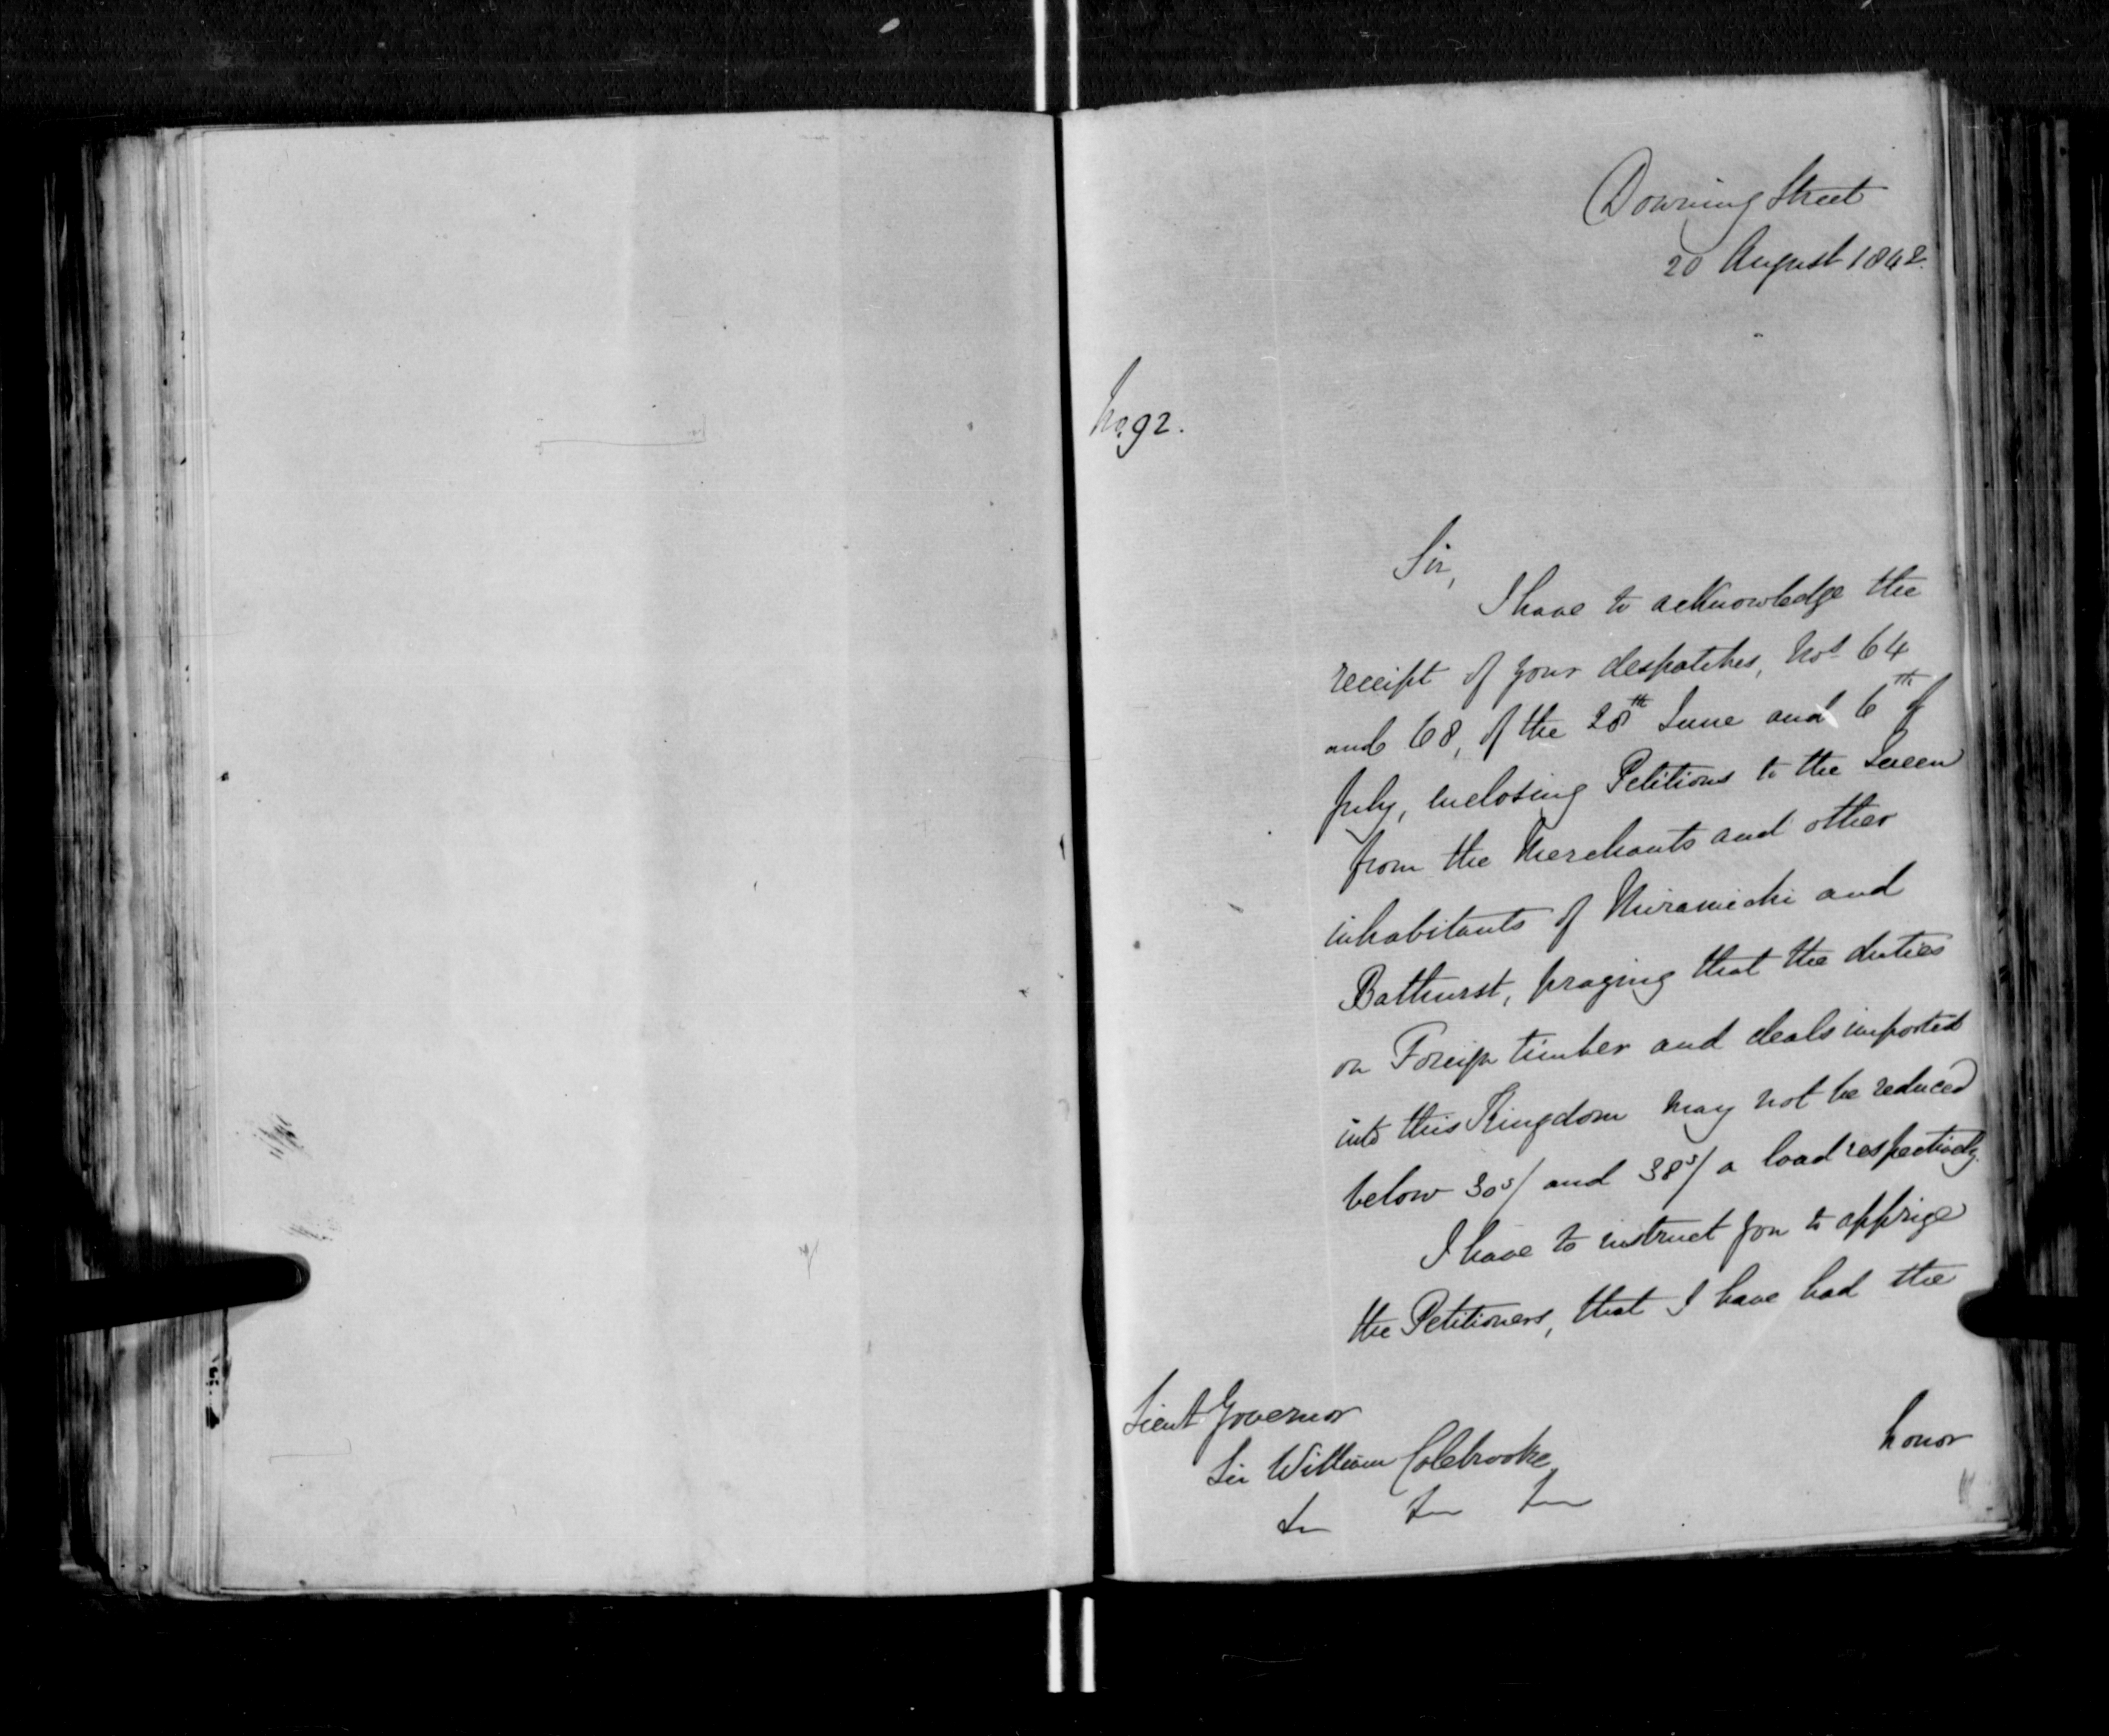 Downing Street
20 August 1842.
No. 92.
Sir,
I have to acknowledge the
receipt of your despatches, Nos 64
and 68, of the 28th June and 6th of
July, enclosing Petitions to the Queen
from the Merchants and other
inhabitants of Miramichi and
Bathurst, praying that the duties
on Foreign timber and deals imported
into this Kingdom may not be reduced
below 30s/ and 38s/ a load respectively.
I have to instruct you to apprize
the Petitioners, that I have had the
Lieut Governor
Sir William Colebrooke
&c &c &c
honor